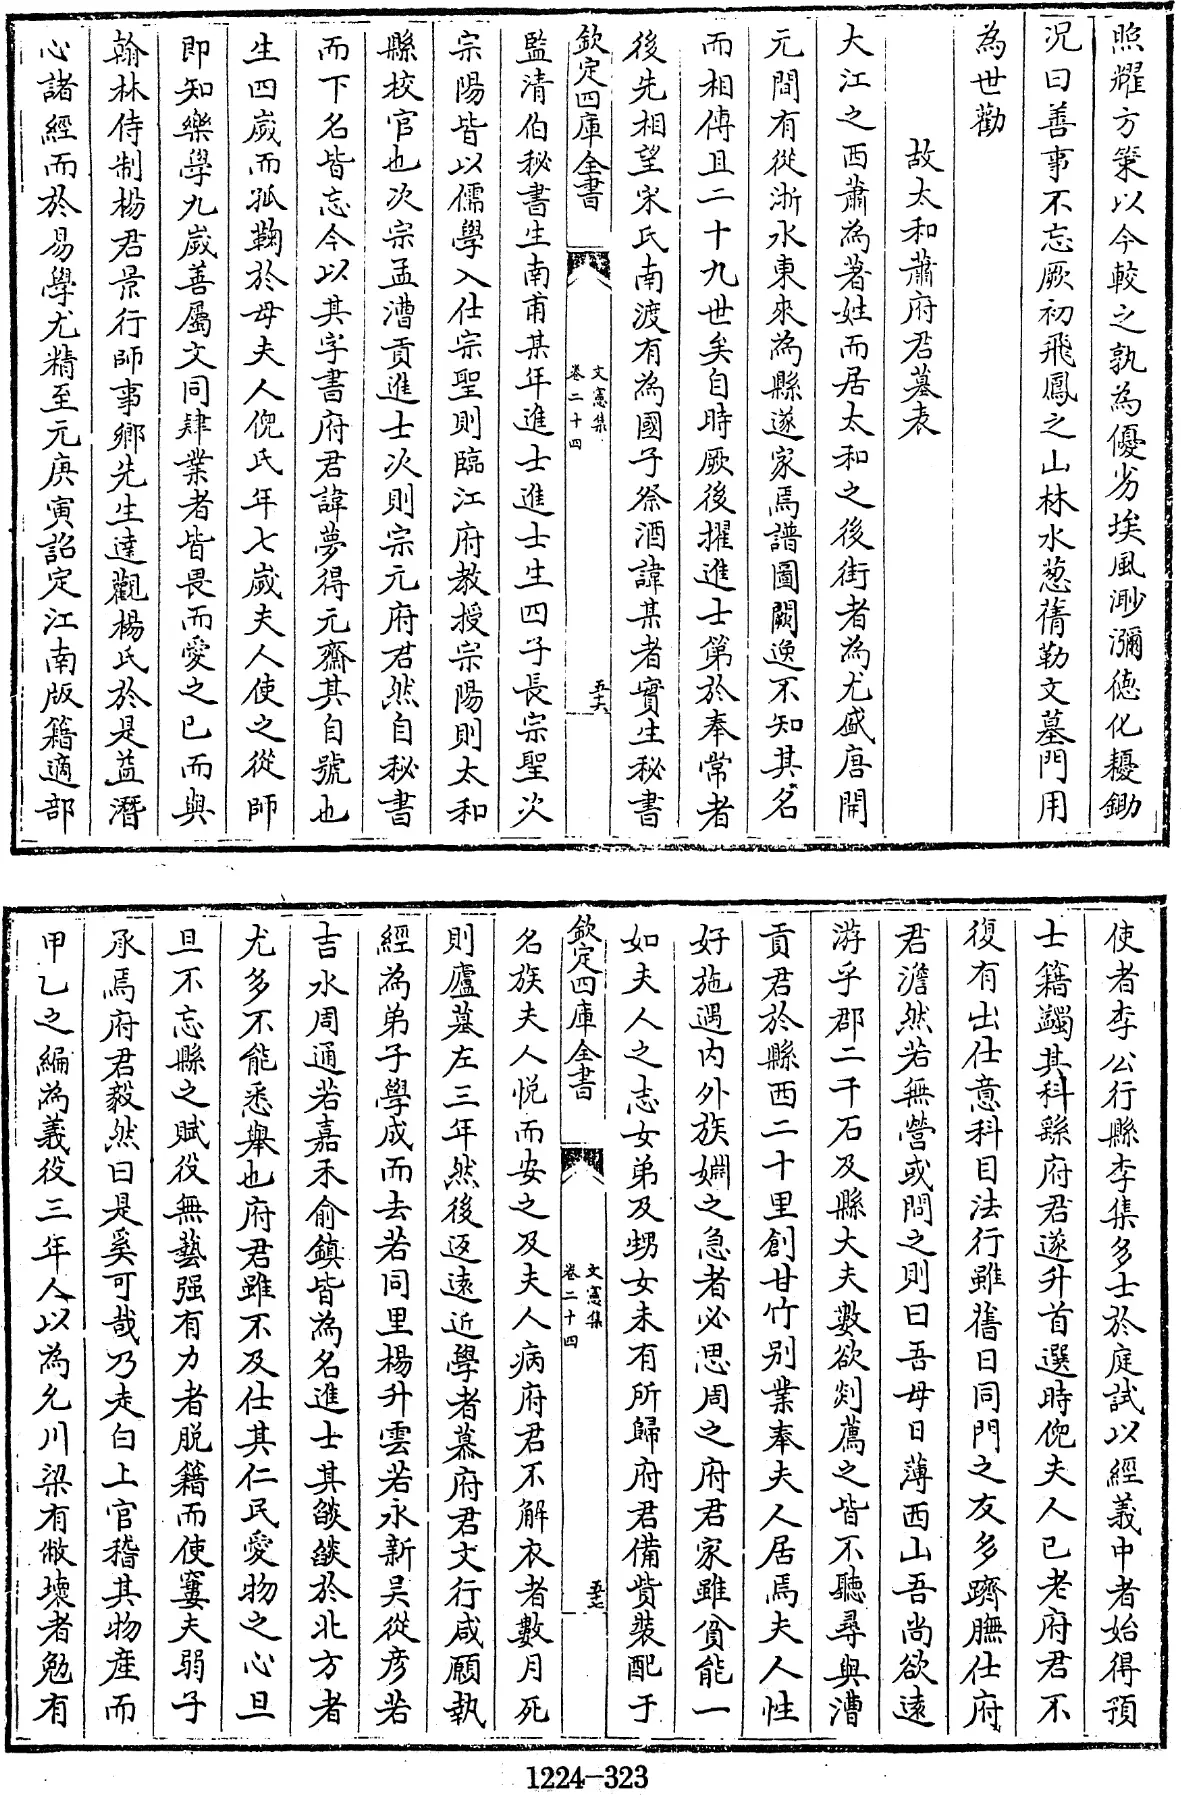 照耀方策以今較之孰為優劣埃風渺瀰德化耰鋤
況曰善事不忘厥初飛鳳之山林水葱蒨勒文墓門用
為世勸
故太和蕭府君墓表
大江之西蕭為著姓而居太和之後街者為尤盛唐開
元間有從浙水東來為縣遂家焉譜圖闕逸不知其名
而相傳且二十九世矣自時厥後擢進士第於奉常者
後先相望宋氏南渡有為國子祭酒諱某者實生秘書
欽定四庫全書
文憲集
卷二十四
五十六
監清伯秘書生南甫某年進士進士生四子長宗聖次
宗陽皆以儒學入仕宗聖則臨江府教授宗陽則太和
縣校官也次宗孟漕貢進士次則宗元府君然自秘書
而下名皆忘今以其字書府君諱夢得元齋其自號也
生四歲而孤鞠於母夫人倪氏年七歲夫人使之從師
即知樂學九歲善屬文同肄業者皆畏而愛之已而與
翰林侍制楊君景行師事鄉先生達觀楊氏於是益潛
心諸經而於易學尤精至元庚寅詔定江南版籍適部
使者李公行縣李集多士於庭試以經義中者始得預
士籍蠲其科繇府君遂升首選時倪夫人已老府君不
復有出仕意科目法行雖舊日同門之友多躋膴仕府
君澹然若無營或問之則曰吾母日薄西山吾尚欲遠
游乎郡二千石及縣大夫數欲剡薦之皆不聽尋與漕
貢君於縣西二十里創甘竹别業奉夫人居焉夫人性
好施遇内外族婣之急者必思周之府君家雖貧能一
如夫人之志女弟及甥女未有所歸府君備貲裝配于
欽定四庫全書
文憲集
卷二十四
五十七
名族夫人悦而安之及夫人病府君不解衣者數月死
則廬墓左三年然後返遠近學者慕府君文行咸願執
經為弟子學成而去若同里楊升雲若永新吴從彦若
吉水周通若嘉禾俞鎮皆為名進士其餤餤於北方者
尤多不能悉舉也府君雖不及仕其仁民愛物之心旦
旦不忘縣之賦役無藝强有力者脱籍而使窶夫弱子
承焉府君毅然曰是奚可哉乃走白上官稽其物産而
甲乙之編為義役三年人以為允川梁有敝壊者勉有
1224—323